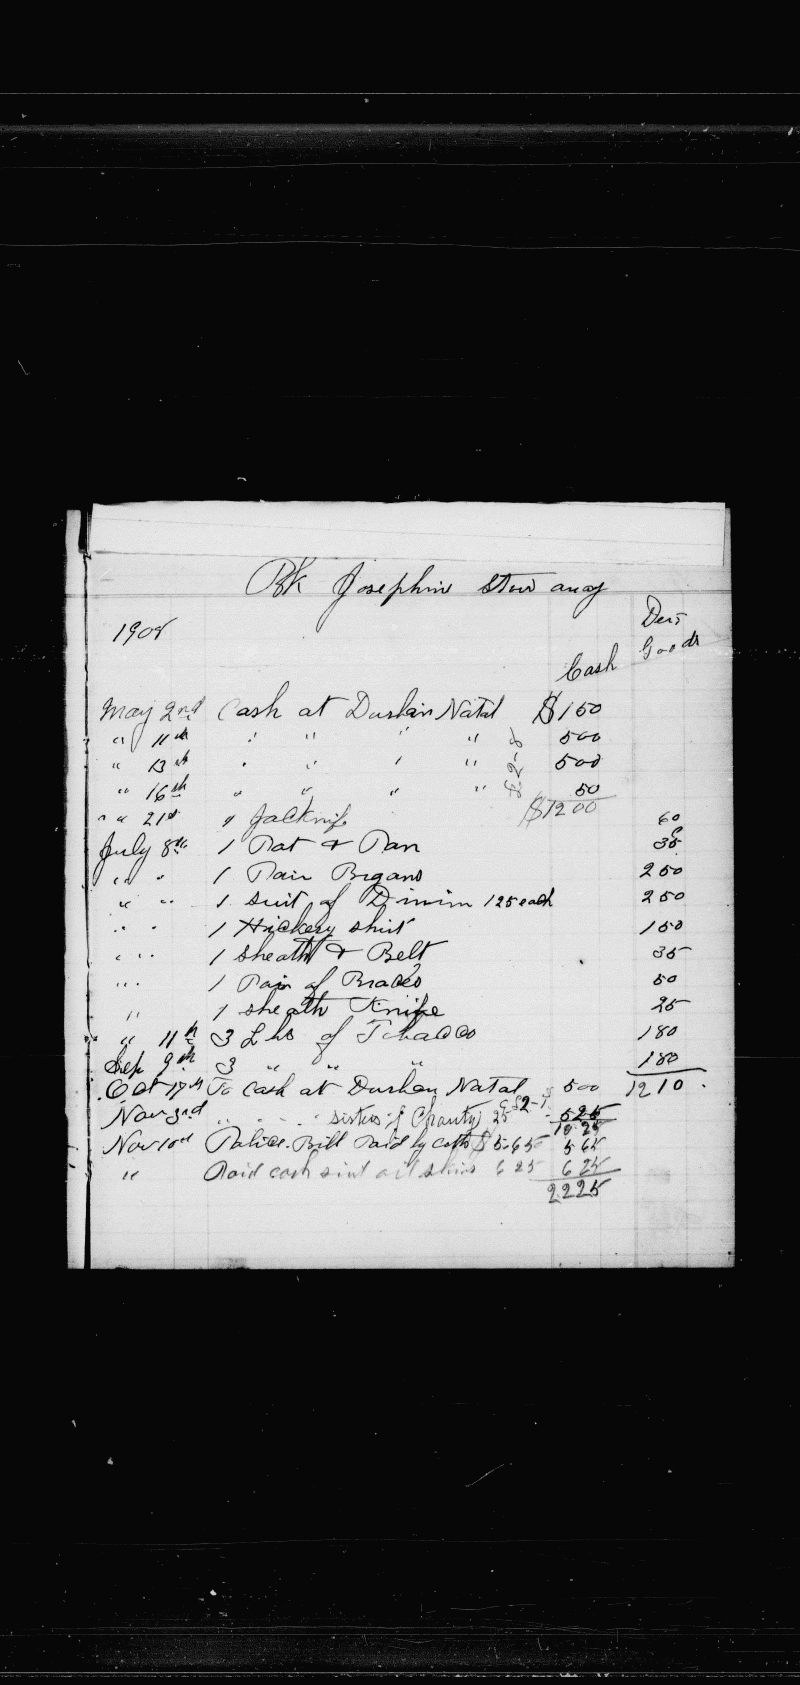 Bk Josephine Stow away
1908
Des
Goods
Cash
May 2nd Cash at Durban Natal $150
" 11th " " " " 500
" 13th " " " " 500
" 16th " " " " 50
£2-8
$1200
" " 21st " Jacknife 60
July 8th 1 Pot & Pan 35
" " 1 Pair Brgans 250
" " 1 suit of Dimim 125 each 250
" " 1 Hickery shirt 150
" " 1 sheath & Belt 35
" " 1 Pair of Braces 50
" 1 sheath Knife 25
" 11th 3 Lbs of Tobacco 180
Sep 9th 3 " " " 180
Oct 17th To Cash at Durban Natal 500 1210
Nov 3rd " " " " sisters of Charity 25 £2-1 525
1025
Nov 10th Police Bill Paid by $5.65 565
" Paid cash 625 625
2225